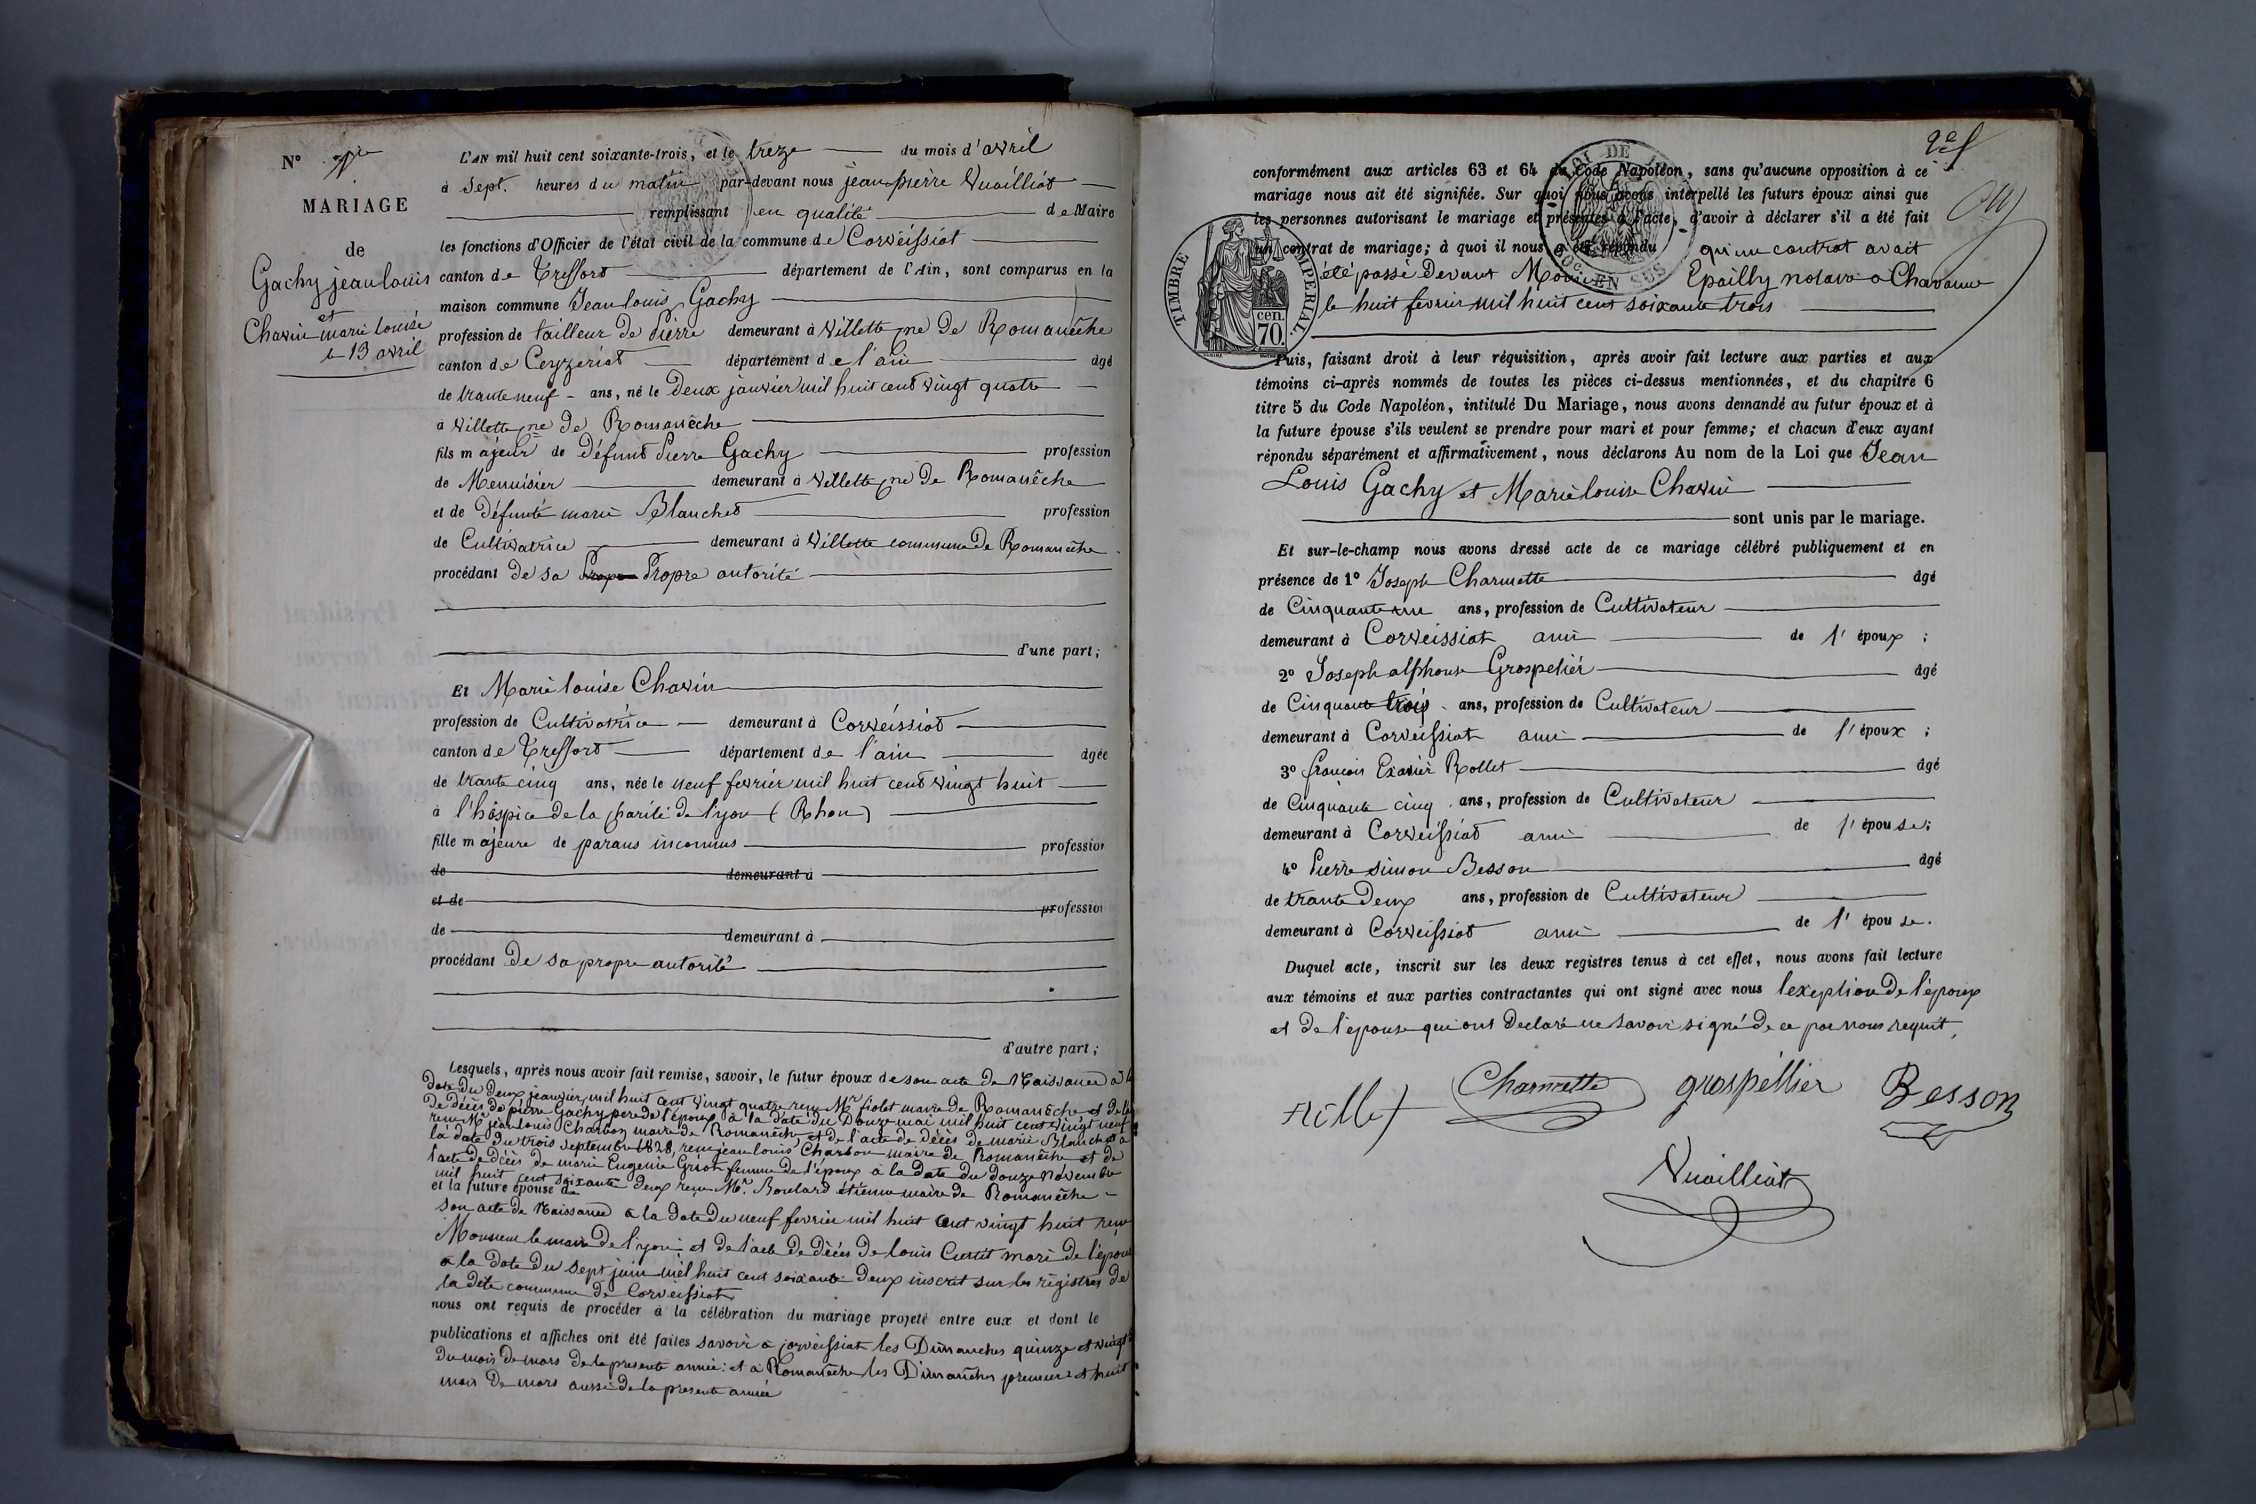 N°
MARIAGE
de
Gachy jean louis
et
Chavin marie louise
le 13 avril
L'AN mil huit cent soixante-trois, et le treze du mois d'avril
à sept heures du matin par-devant nous jean pierre Vuailliat
remplissant en qualité de Maire
les fonctions d'Officier de l'état civil de la commune de Corveissiat
canton de Treffort département de l'Ain, sont comparus en la
maison commune Jean louis Gachy
profession de tailleur de Pierre demeurant à Villette ne de Romanêche
canton de Ceyzeriat département de l'ain âgé
de trante neuf ans, né le Deux janvier mil huit cent vingt quatre
à Villette ne de Romanêche
fils majeur de Défunt Pierre Gachy profession
de Menuisier demeurant à Villette ne de Romanêche
et de Défunte marie Blanchet profession
de Cultivatrice demeurant à Villette commune de Romanêche
procédant de sa Propre autorité
d'une part;
Et Marie louise Chavin
profession de Cultivatrice demeurant à Corveissiat
canton de Treffort département de l'ain âgée
de trante cinq ans, née le neuf fevrier mil huit cent vingt huit
à l'hôspice de la charité de lyon (Rhone)
fille majeure de parans inconnus profession
de demeurant à
et de profession
de demeurant à
procédant de sa propre autorité
d'autre part;
Lesquels, après nous avoir fait remise, savoir, le futur époux de son acte de Naissance à la
date du deux janvier mil huit cent vingt quatre reçu Mr fiolet maire de Romanêche et de l'
de décès de pierre Gachy pere de l'époux à la date du Douze mai mil huit cent vingt neuf
reçu Mr jean louis Charbon maire de Romanêche et de l'acte de décès de marie Blanchet à
la date du trois septembre 1828, reçu jean louis Charbon maire de Romanêche et de
l'acte de décès de marie Eugenie Griot femme de l'époux à la date du douze Novembre
mil huit cent soixante deux reçu Mr. Boulard étienne maire de Romanêche
et la future épouse de
son acte de Naissance à la date du neuf fevrier mil huit cent vingt huit reçu
Monsieur le maire de lyon et de l'acte de décés de louis Curtit mari de l'épouse
à la date du sept juin mil huit cent soixante Deux inscrit sur les régistres de
la dite commune de Corveissiat
nous ont requis de procéder à la célébration du mariage projeté entre eux et dont le
publications et affiches ont été faites savoir à corveissiat les Dimanches quinze et vingt
du mois de mars de la presente année et à Romanêche les Dimanches premiere et huit
mois de mars aussi de la presente année
conformément aux articles 63 et 64 du Code Napoléon, sans qu'aucune opposition à ce
mariage nous ait été signifiée. Sur quoi nous avons interpellé les futurs époux ainsi que
les personnes autorisant le mariage et présentes à l'acte, d'avoir à déclarer s'il a été fait
un contrat de mariage; à quoi il nous a été répondu qu'un contrat avait
été passé Devant Epailly notaire à Chavanne
le huit fevrier mil huit cent soixante trois
TIMBRE IMPERIAL.
cen.
70.
Puis, faisant droit à leur réquisition, après avoir fait lecture aux parties et aux
témoins ci-après nommés de toutes les pièces ci-dessus mentionnées, et du chapitre 6
titre 5 du Code Napoléon, intitulé Du Mariage, nous avons demandé au futur époux et à
la future épouse s'ils veulent se prendre pour mari et pour femme; et chacun d'eux ayant
répondu séparément et affirmativement, nous déclarons Au nom de la Loi que Jean
Louis Gachy et Marie louise Chavin
sont unis par le mariage.
Et sur-le-champ nous avons dressé acte de ce mariage célébré publiquement et en
présence de 1° Joseph Charmette âgé
de Cinquante un ans, profession de Cultivateur
demeurant à Corveissiat ami de l'époux;
2° Joseph alphonse Grospelier âgé
de Cinquante trois ans, profession de Cultivateur
demeurant à Corveissiat ami de l'époux;
3° françois Exavier Rollet âgé
de Cinquante cinq ans, profession de Cultivateur
demeurant à Corveissiat ami de l'épouse;
4° Pierre simon Besson âgé
de trante Deux ans, profession de Cultivateur
demeurant à Corveissiat ami de l'épouse.
Duquel acte, inscrit sur les deux registres tenus à cet effet, nous avons fait lecture
aux témoins et aux parties contractantes qui ont signé avec nous l'exeption de l'époux
et de l'épouse qui ont Declaré ne savoir signé de ce par nous requit.
Charmette grospéllier Besson
Vuailliat